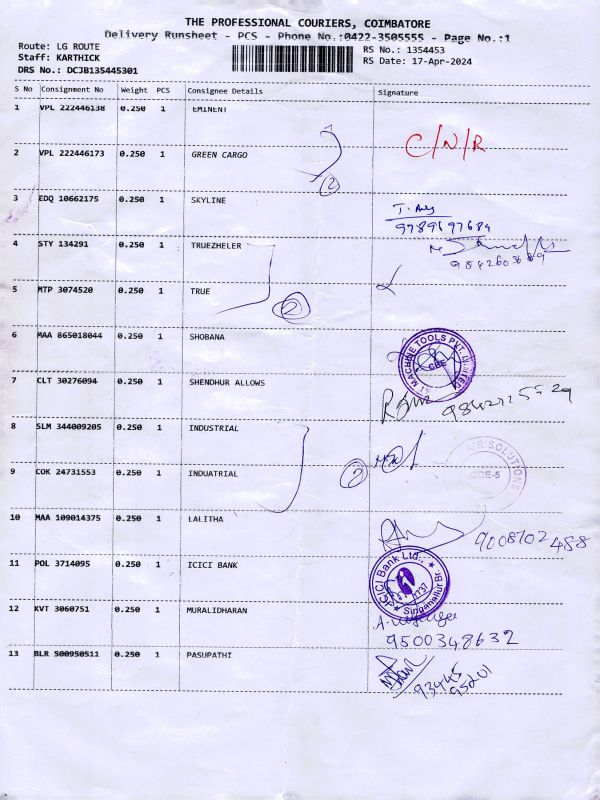 THE PROFESSIONAL COURIERS, COIMBATORE
Delivery Runsheet - PCS - Phone No.:0422-3505555 - Page No.:1
Route: LG ROUTE
Staff: KARTHICK
DRS No.: DCJB135445301
RS No.: 1354453
RS Date: 17-Apr-2024
S No Consignment No Weight PCS Consignee Details Signature
1 VPL 222446138 0.250 1 EMINENT
C/N/R
2 VPL 222446173 0.250 1 GREEN CARGO
2
3 EDQ 10662175 0.250 1 SKYLINE
9789697684
4 STY 134291 0.250 1 TRUEZHELER
5 MTP 3074520 0.250 1 TRUE
2
6 MAA 865018044 0.250 1 SHOBANA
MACHINE TOOLS PVT. LIMITED
CBE
7 CLT 30276094 0.250 1 SHENDHUR ALLOWS
8 SLM 344009205 0.250 1 INDUSTRIAL
SOLUTIONS
9 COK 24731553 0.250 1 INDUATRIAL
2
10 MAA 109014375 0.250 1 LALITHA
9008702488
11 POL 3714095 0.250 1 ICICI BANK
ICICI Bank Ltd.,
Singanallur Br.
12 KVT 3060751 0.250 1 MURALIDHARAN
9500348632
13 BLR 500950511 0.250 1 PASUPATHI
93445
95201